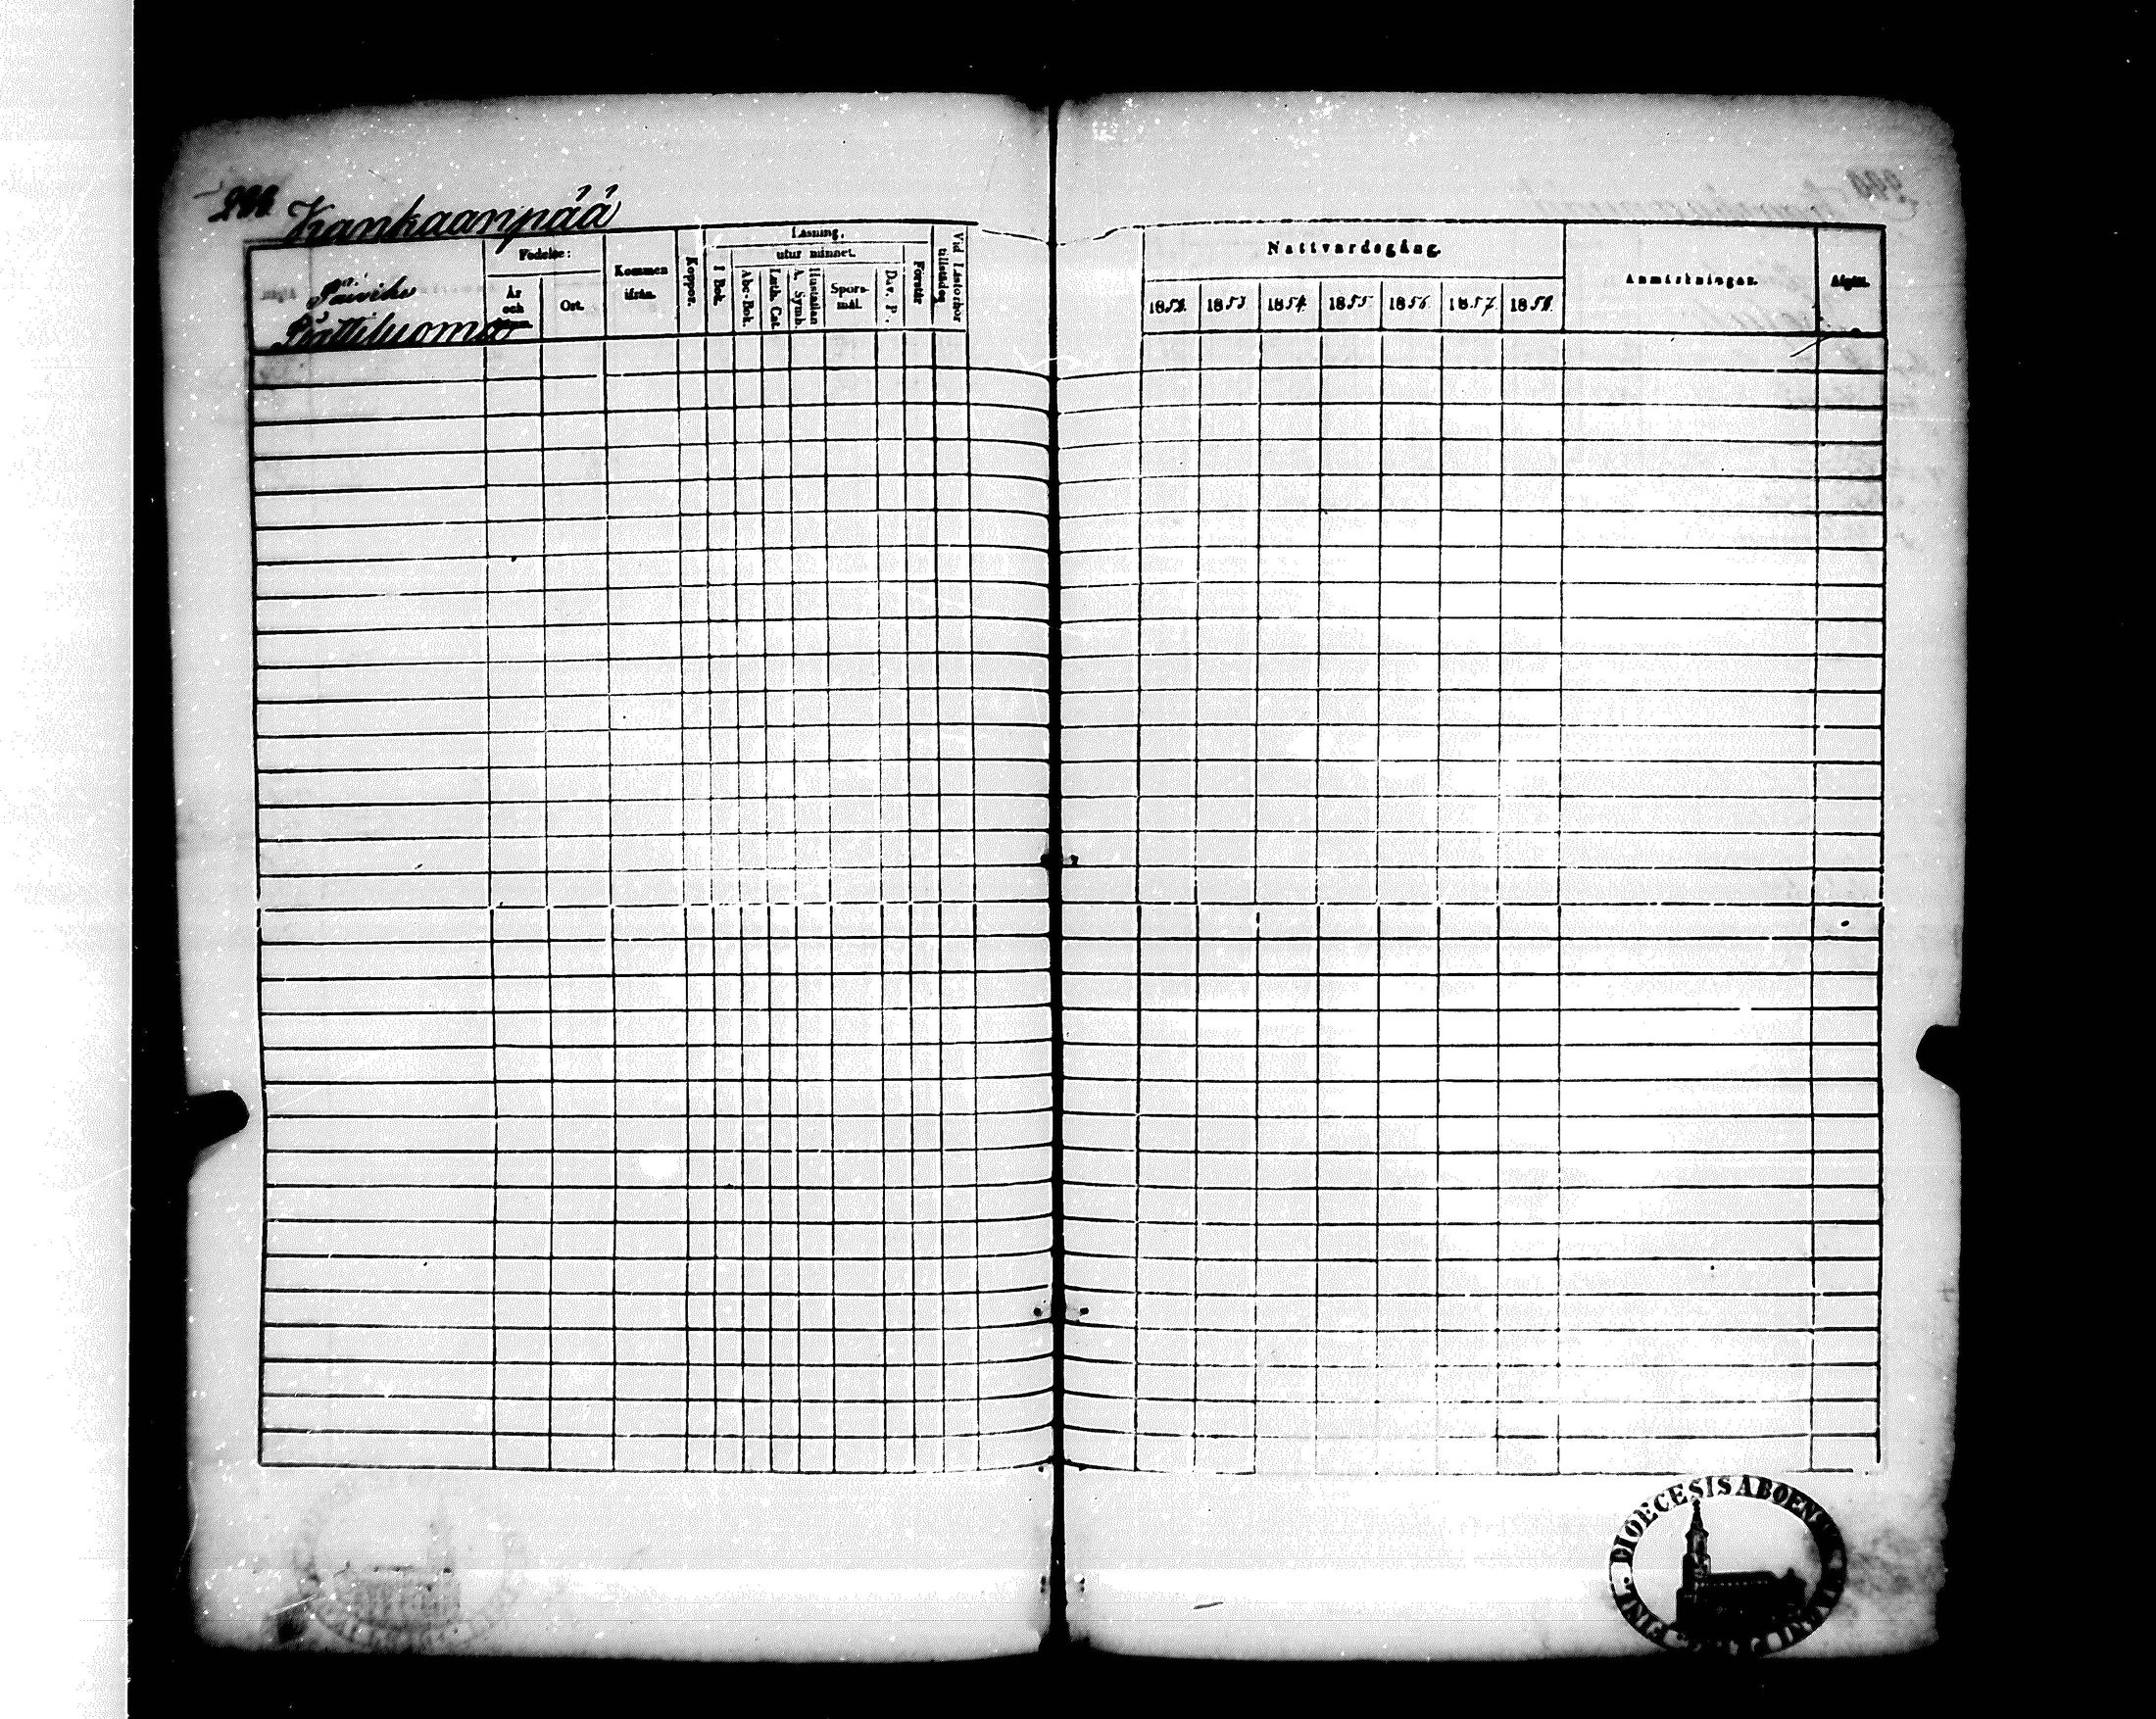 Kankaanpää
Läsning.
Födelse:
utur minnet.
Kommen
ifrån.
Koppor.
I Bok.
Abc-Bok.
Luth. Cat.
A. Symb.
Hustaflan
Spors-
mål.
Dav. P.
Förstår
Vid Läsförhör
tillstädes
År
och
Ort.
Nattvardsgång.
Anmärkningar.
Afgått.
1852. 1853. 1854. 1855. 1856. 1857. 1858.
DIOECESIS ABOENSIS